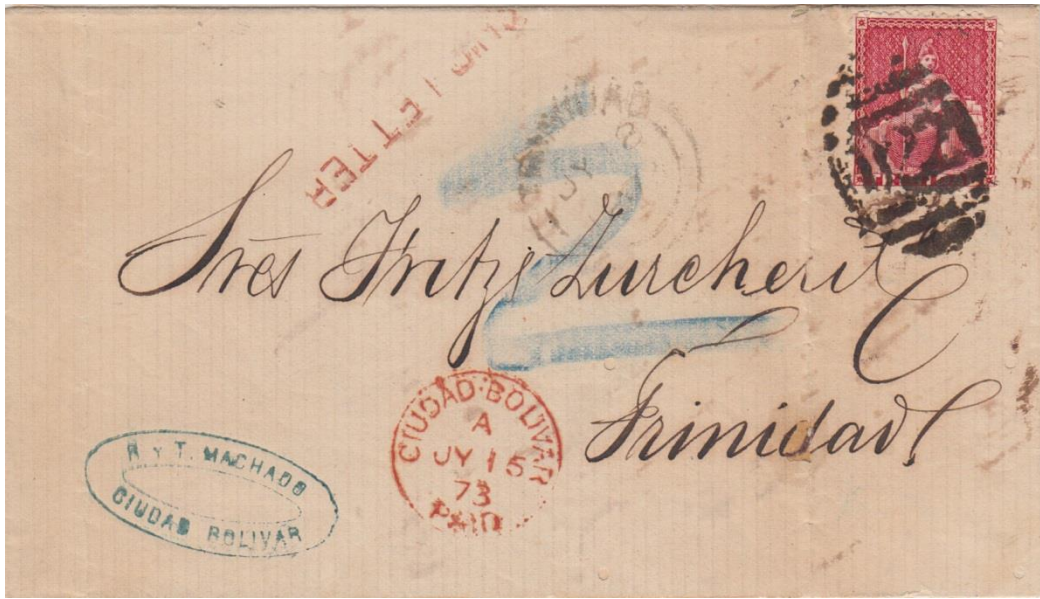 LETTER
TRINIDAD
JY
2
Sres Fritz Zurcher
C
Trinidad
CIUDAD·BOLIVAR
A
JY 15
73
PAID
R Y T. MACHADO
CIUDAD BOLIVAR